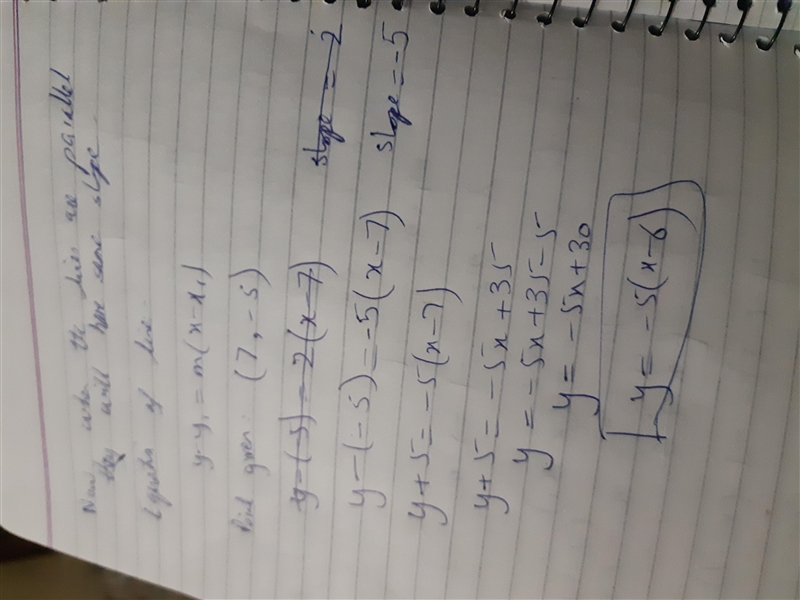 Now when the lines are parallel
they will have same slope
Equation of line
y-y₁ = m(x-x₁)
Point given: (7, -5)
y-(-5) = 2(x-7) slope = 2
y-(-5) = -5(x-7) slope = -5
y+5 = -5(x-7)
y+5 = -5x+35
y = -5x+35-5
y = -5x+30
y = -5(x-6)